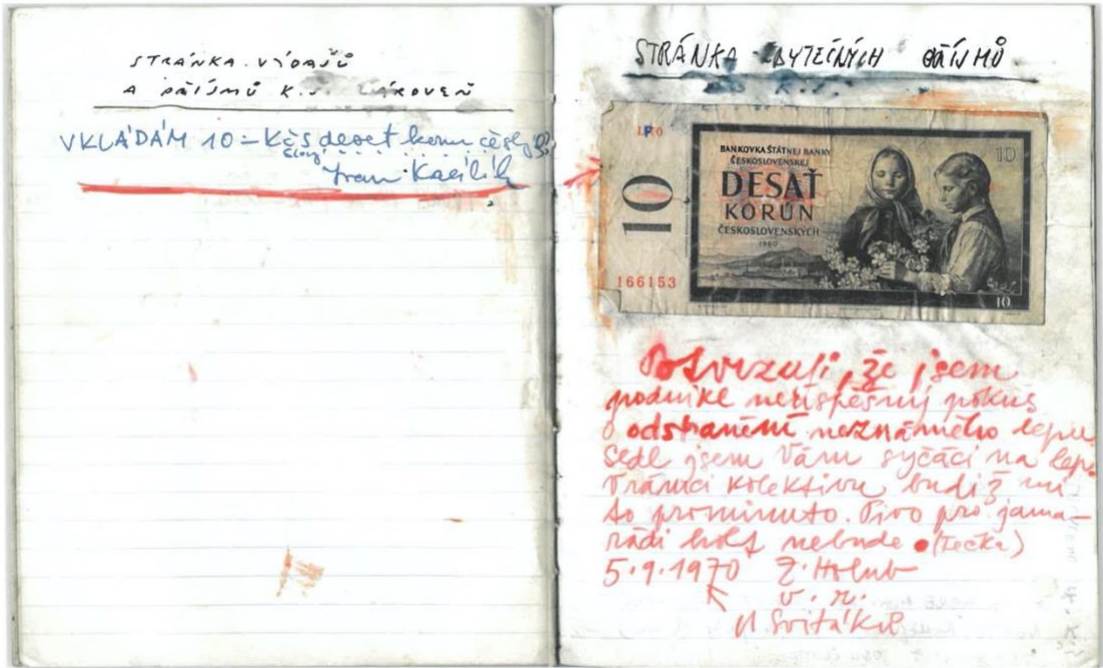 STRÁNKA VÝDAJŮ
A PŘÍJMŮ K.J.
VKLÁDÁM 10 = Kčs deset korun
STRÁNKA ZBYTEČNÝCH PŘÍJMŮ
K.J.
10
166153
BANKOVKA ŠTÁTNEJ BANKY
ČESKOSLOVENSKEJ
DESAŤ
KORÚN
ČESKOSLOVENSKÝCH
1960
10
10
Potvrzuji, že jsem
podnikl neúspěšný pokus
o odstranění neznámého lepu
Sedl jsem Vám syčáci na lep.
V rámci kolektivu budiž mi
to prominuto. Pivo pro jama-
rádi holt nebude •(tečka)
5.9.1970 Z. Holub
v. r.
U Svitáků